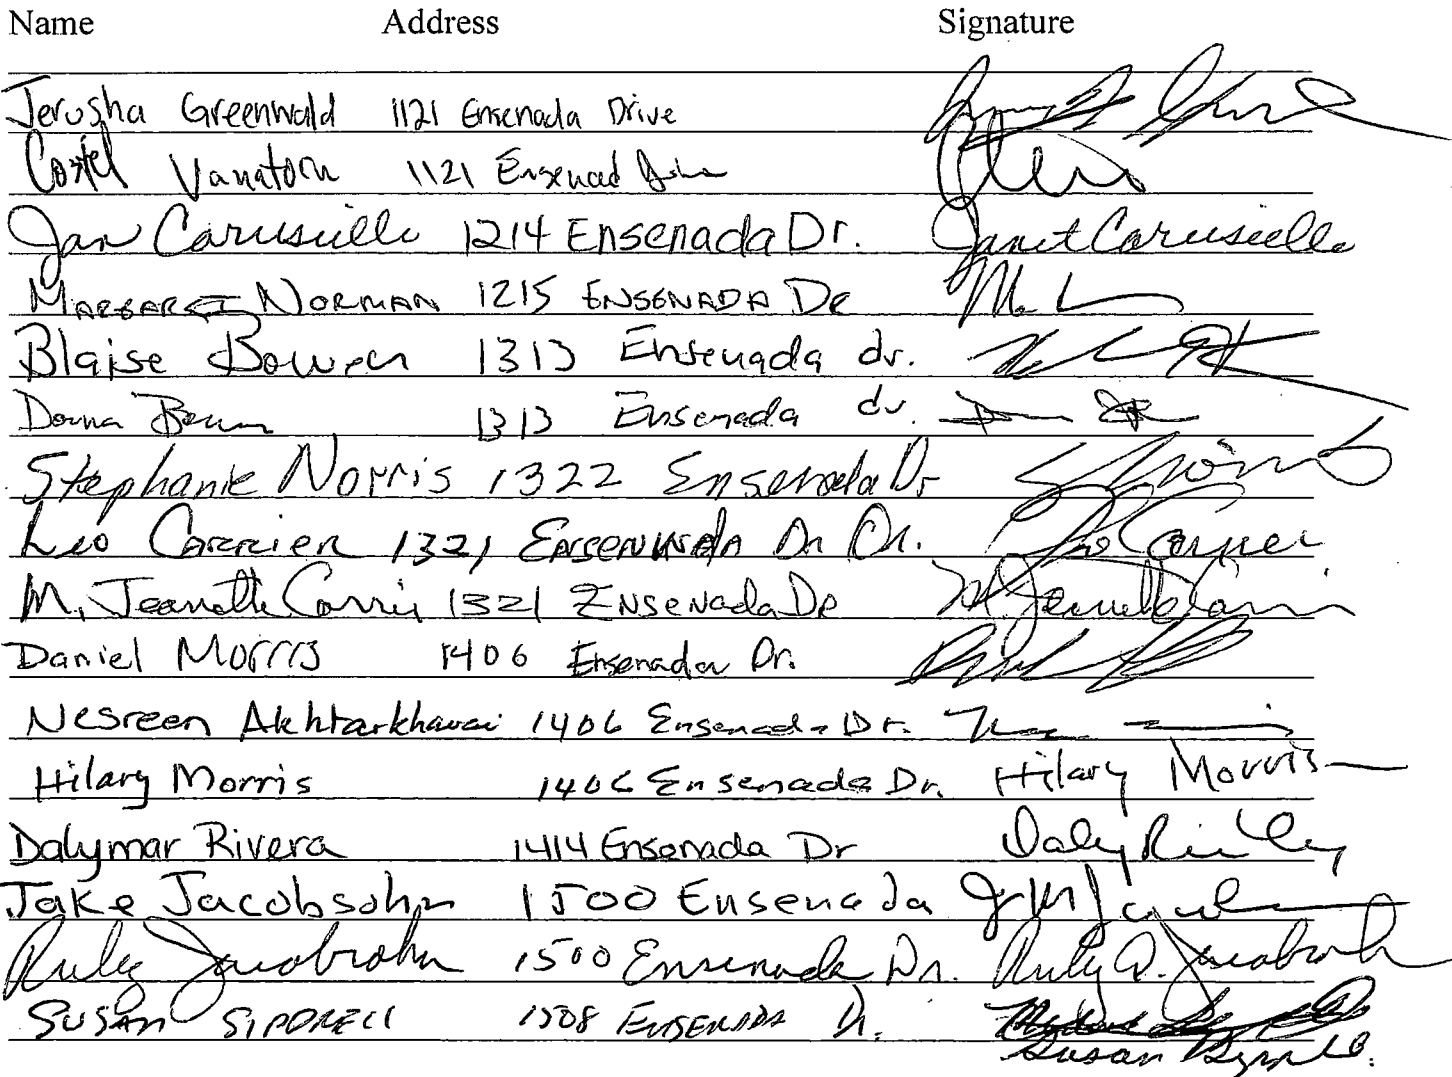 Name Address Signature
Jerusha Greenwald 1121 Ensenada Drive
Costel Vanatoru 1121 Ensenad
Jan Carusiello 1214 Ensenada Dr. Janet Carusiello
Margaret Norman 1215 Ensenada Dr
Blaise Bowen 1313 Ensenada dr.
Donna 1313 Ensenada dr.
Stephanie Norris 1322 Ensenada Dr SNorris
Leo Carrier 1321 Ensenada Dr Dr. Leo Carrier
M. Jeanette Carrier 1321 Ensenada Dr M. Jeanette Carrier
Daniel Morris 1406 Ensenada Dr.
Nesreen Akhtarkhavari 1406 Ensenada Dr.
Hilary Morris 1406 Ensenada Dr. Hilary Morris
Dalymar Rivera 1414 Ensenada Dr
Jake Jacobsohn 1500 Ensenada
Ruby Jacobsohn 1500 Ensenada Dr. Ruby D. Jacobsohn
Susan 1508 Ensenada Dr.
Susan